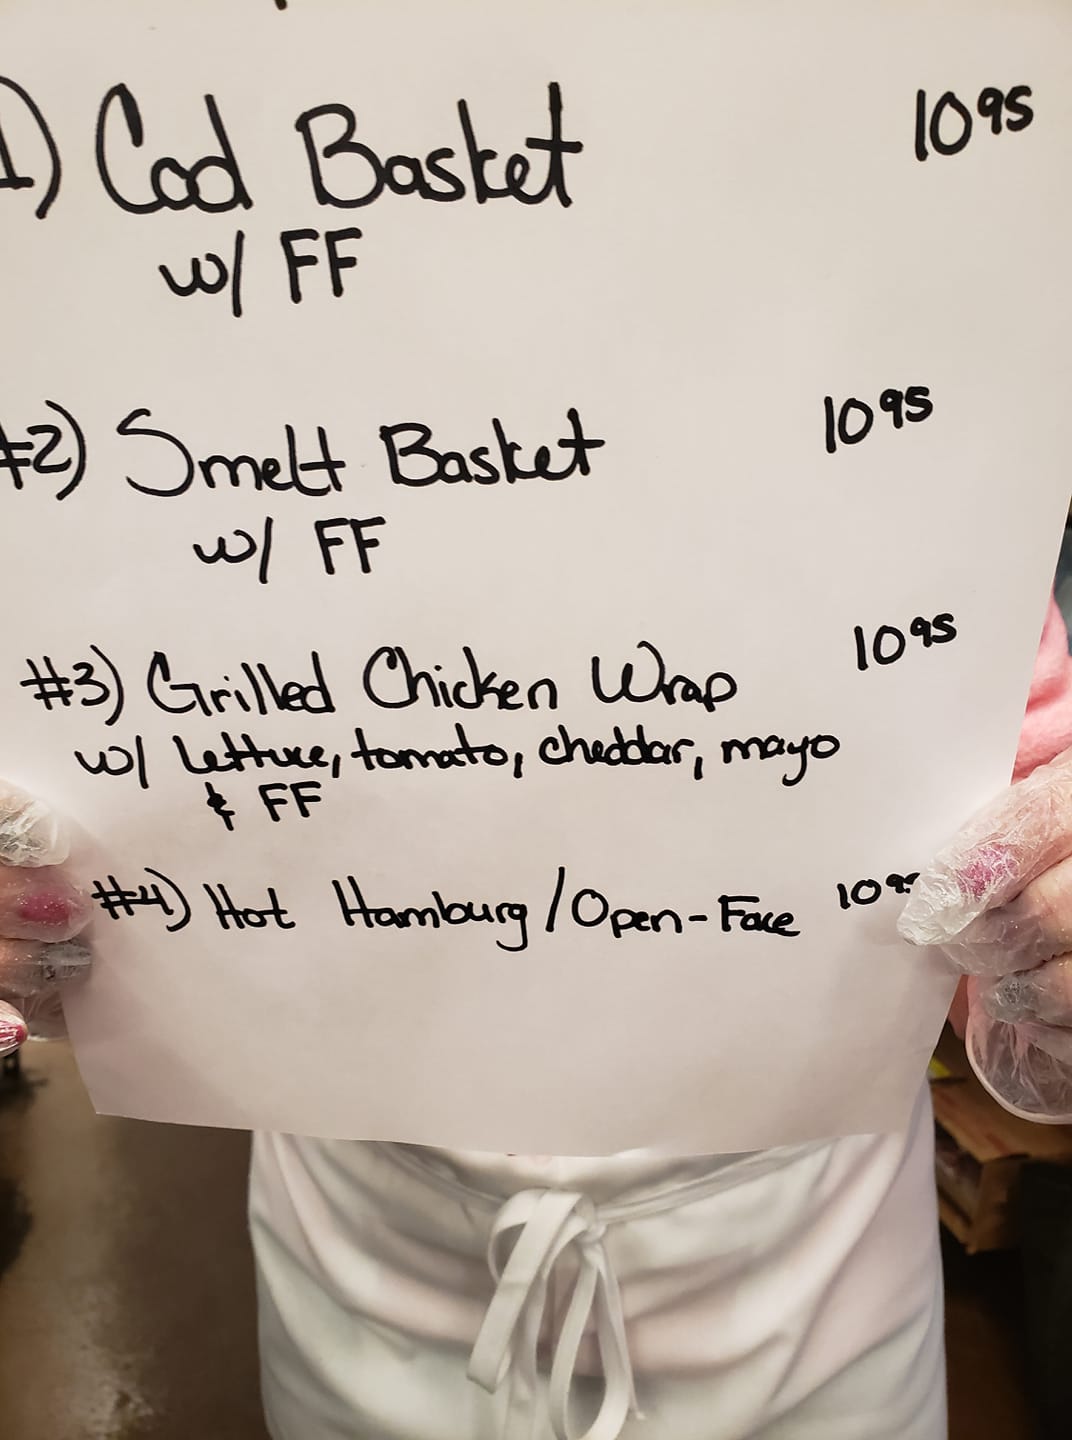 1) Cod Basket 10 95
w/ FF
#2) Smelt Basket 10 95
w/ FF
#3) Grilled Chicken Wrap 10 95
w/ lettuce, tomato, cheddar, mayo
& FF
#4) Hot Hamburg/Open-Face 10 95